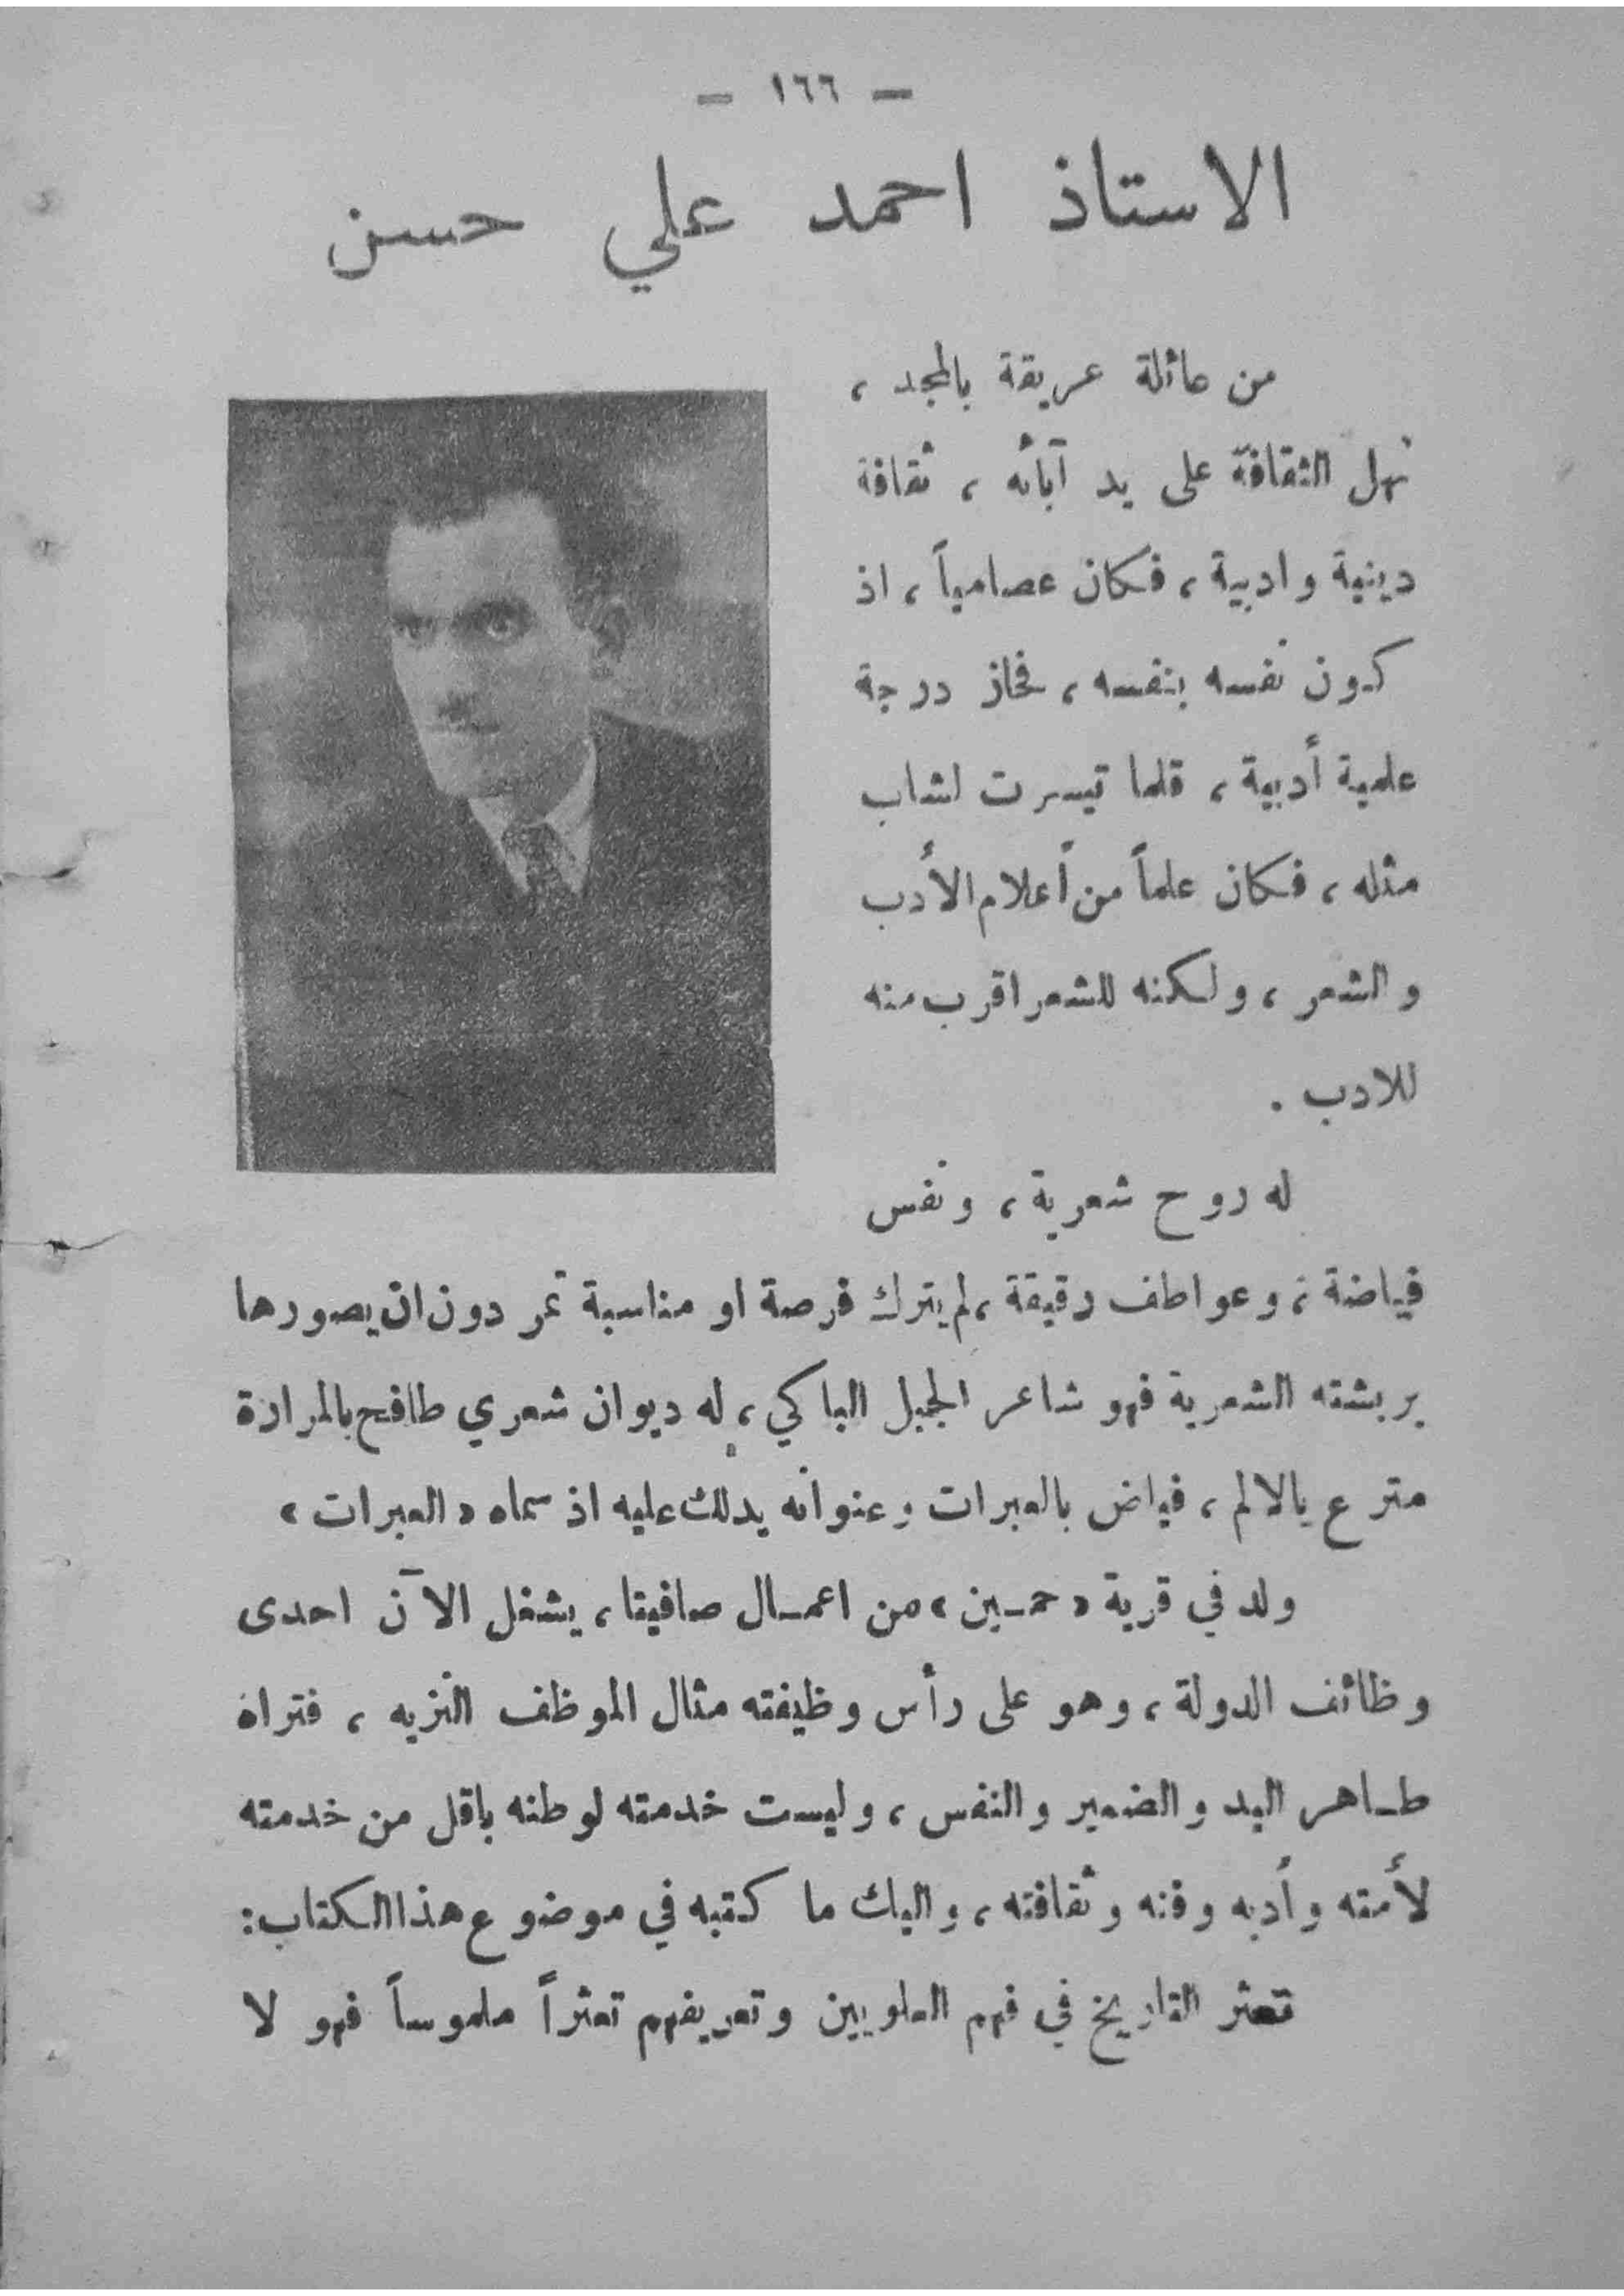 — ١٦٦ —
الاستاذ احمد علي حسن
من عائلة عريقة بالمجد ،
نهل الثقافة على يد آبائه ، ثقافة
دينية وادبية ، فكان عصامياً ، اذ
كون نفسه بنفسه ، فحاز درجة
علمية أدبية ، قلما تيسرت لشاب
مثله ، فكان علماً من أعلام الأدب
والشعر ، ولكنه للشعر اقرب منه
للادب .
له روح شعرية ، ونفس
فياضة ، وعواطف رقيقة ، لم يترك فرصة او مناسبة تمر دون ان يصورها
بريشته الشعرية فهو شاعر الجبل الباكي ، له ديوان شعري طافح بالمرارة
مترع بالالم ، فياض بالعبرات وعنوانه يدلك عليه اذ سماه «العبرات»
ولد في قرية «حمـين» من اعمـال صافيتا ، يشغل الآن احدى
وظائف الدولة ، وهو على رأس وظيفته مثال الموظف النزيه ، فتراه
طـاهر اليد والضمير والنفس ، وليست خدمته لوطنه باقل من خدمته
لأمته وأدبه وفنه وثقافته ، واليك ما كتبه في موضوع هذا الكتاب :
تعثر التاريخ في فهم العلويين وتعريفهم تعثراً ملموساً فهو لا